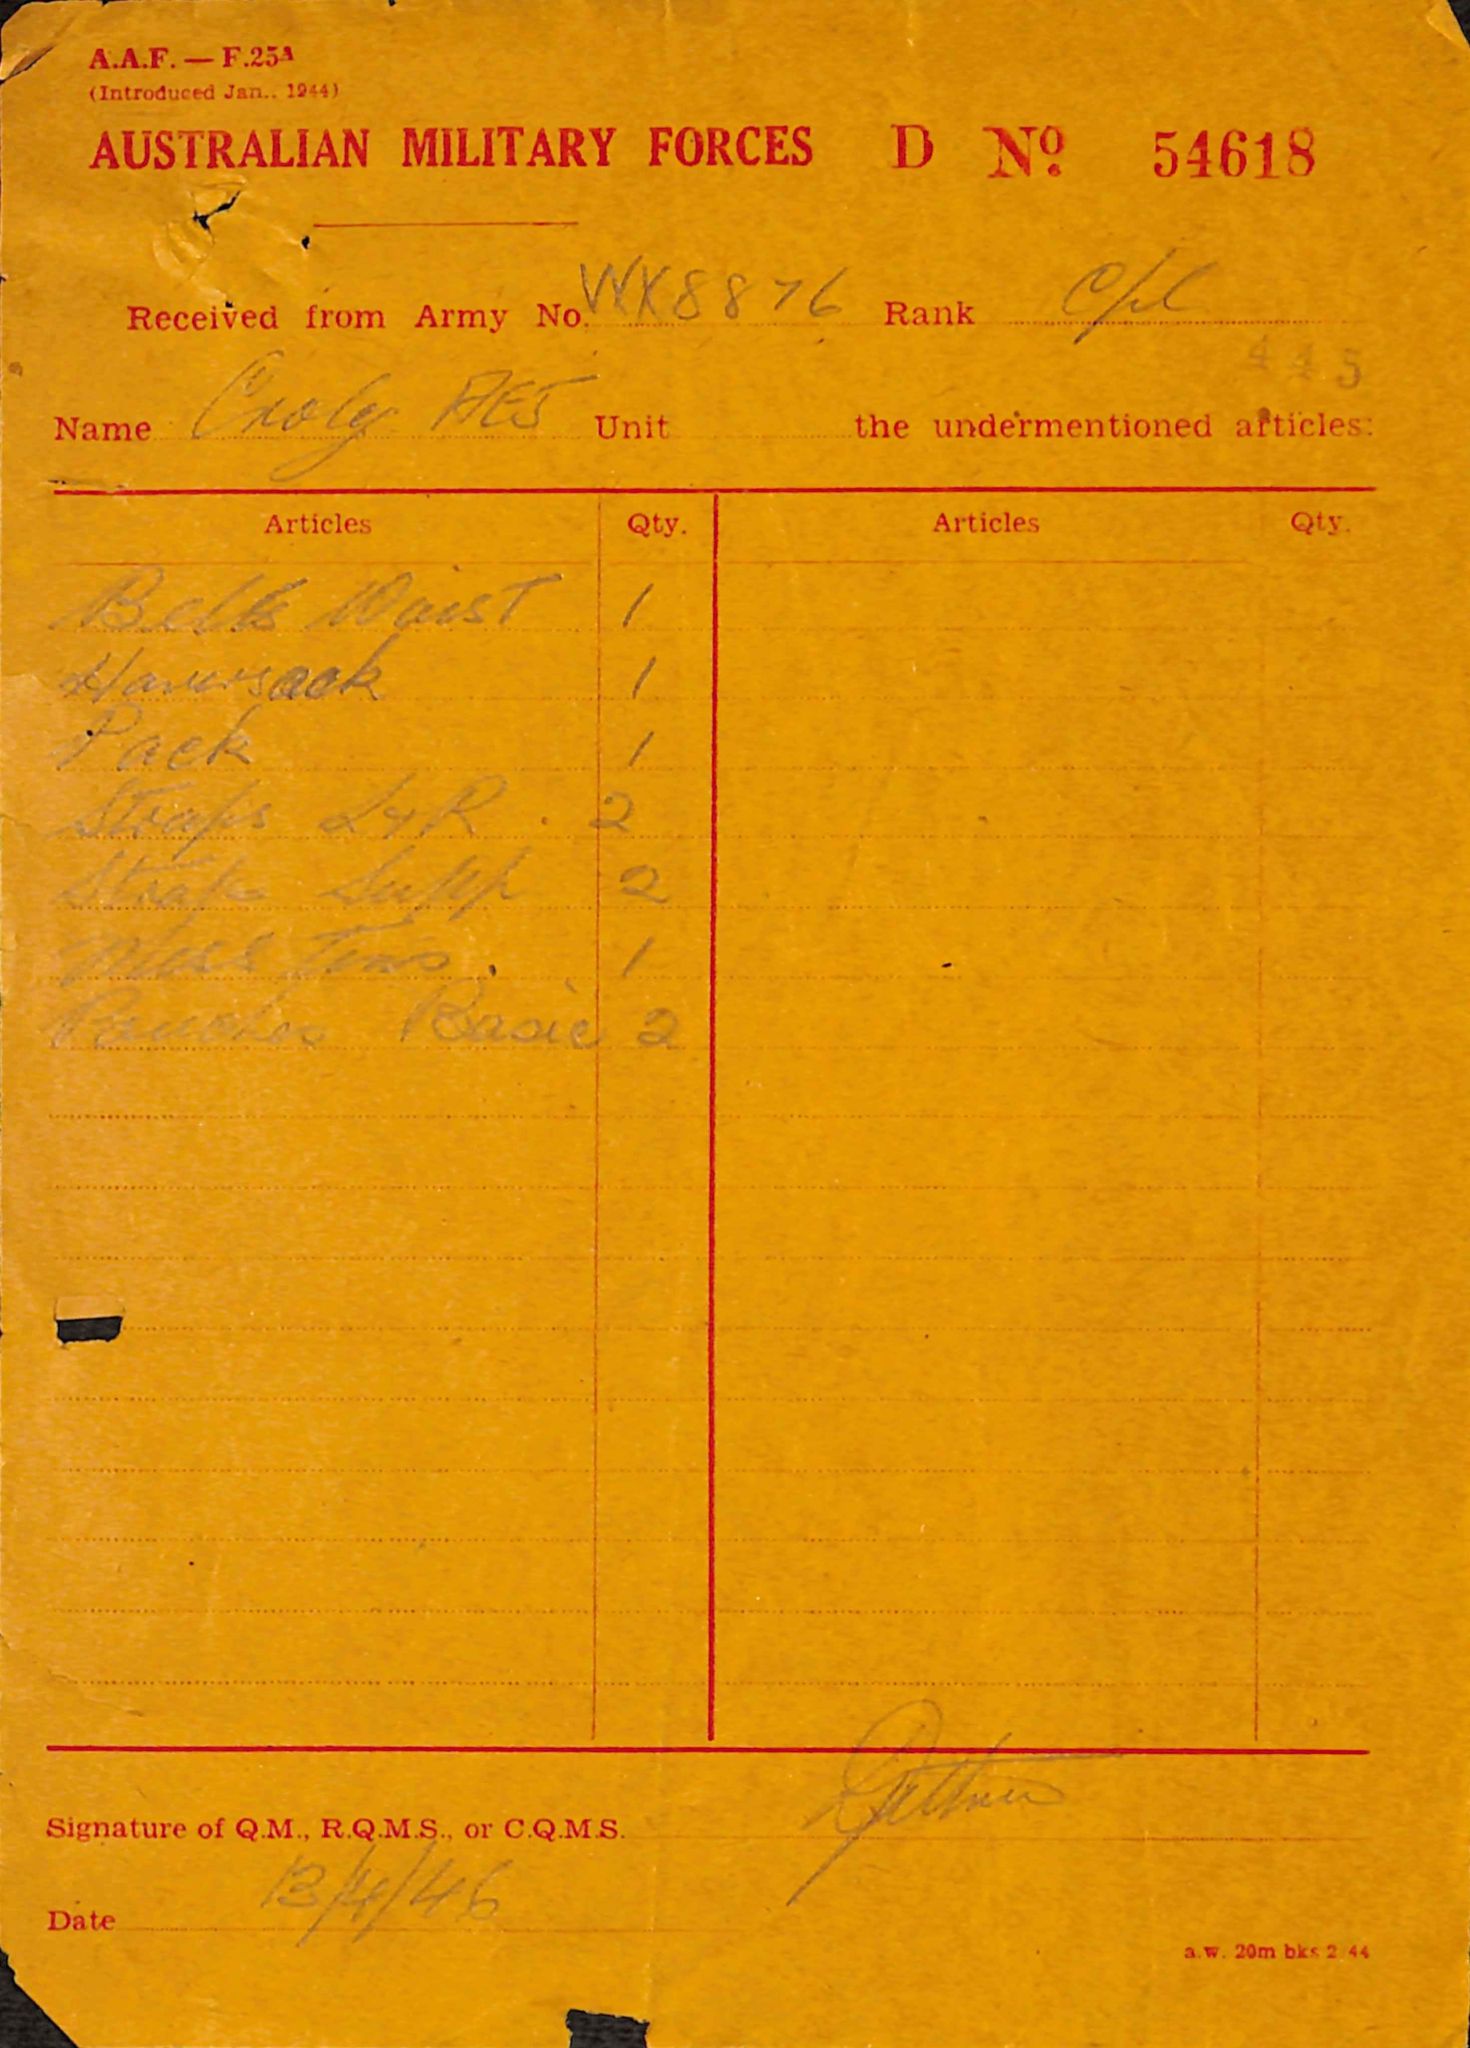 A.A.F. — F.25A
(Introduced Jan.. 1944)
AUSTRALIAN MILITARY FORCES D No 54618
Received from Army No. WX8876 Rank Cpl
445
Name Croly AEJ Unit the undermentioned articles:
Articles Qty. Articles Qty.
Belts Waist 1
Haversack 1
Pack 1
Straps L & R . 2
Straps Supp 2
Mess Tins . 1
Pouches Basic 2
Signature of Q.M., R.Q.M.S., or C.Q.M.S.
Date 13/4/46
a.w. 20m bks 2 44